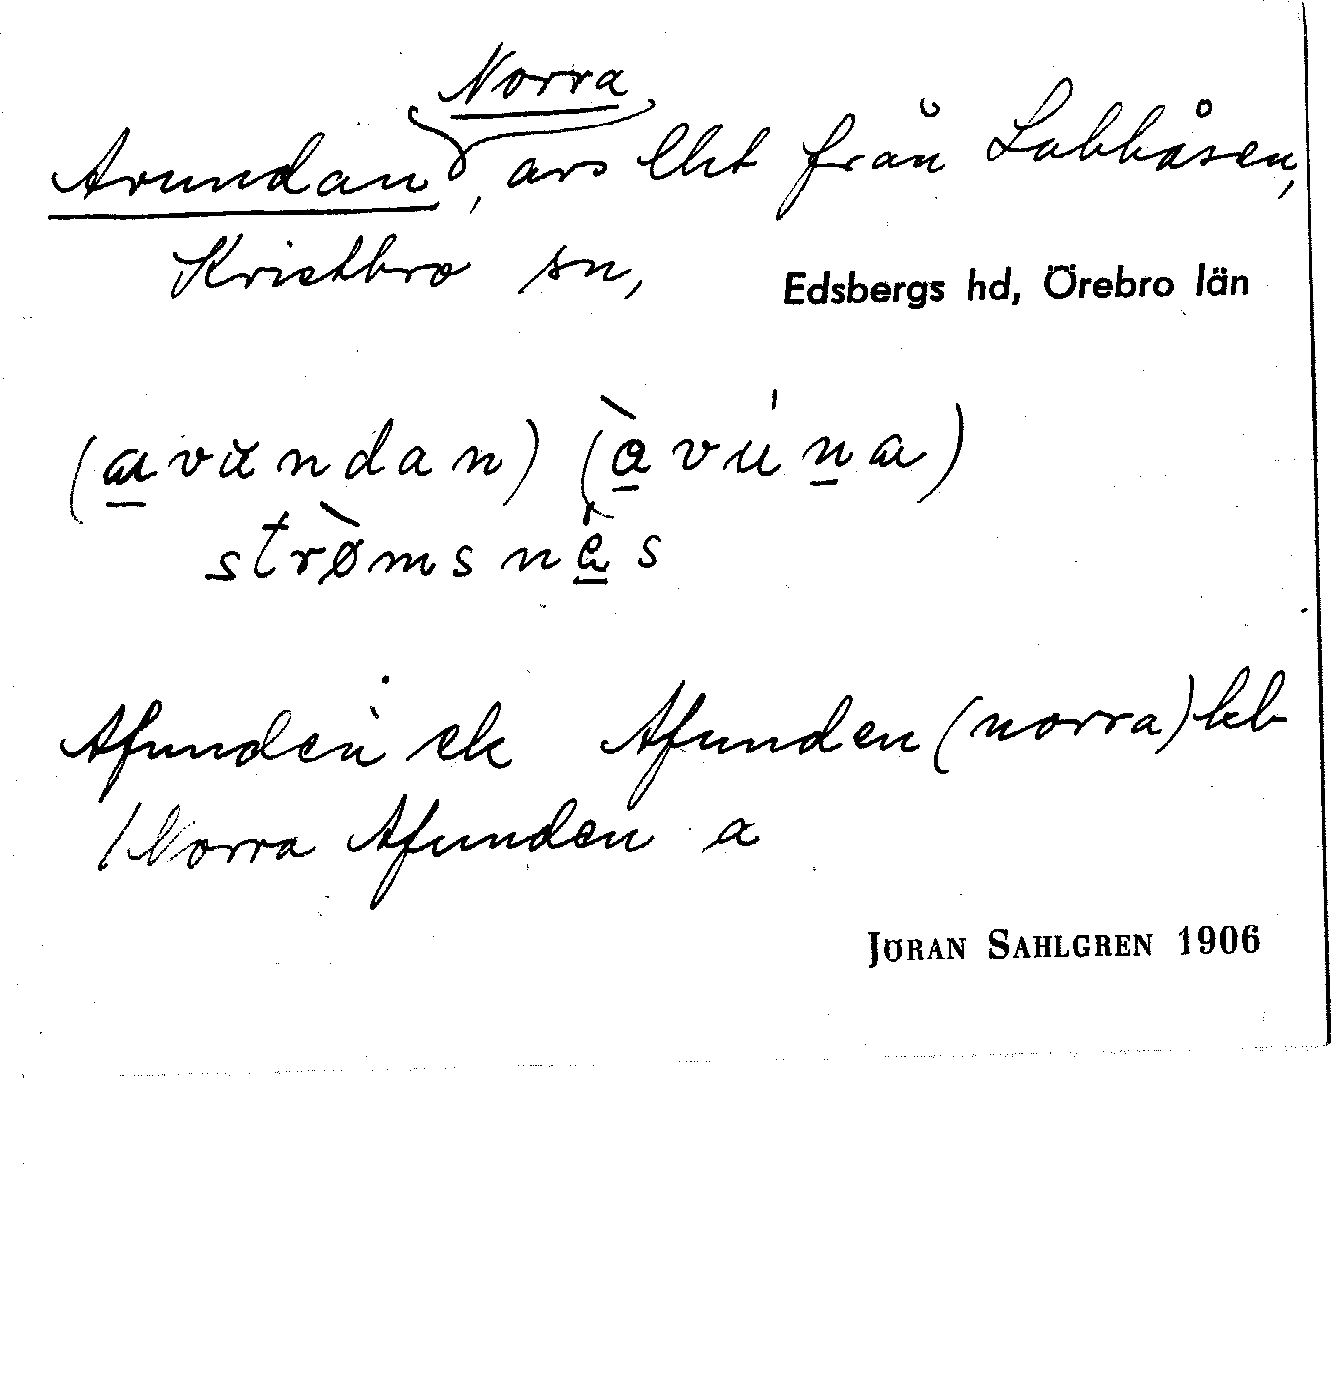 Norra
Avundan, avs lht från Labbåsen,
Kvistbro sn, Edsbergs hd, Örebro län
(avundan) (àvúna)
strømsnæs
Afunden ek Afunden (norra) hb
/ Norra Afunden a
JÖRAN SAHLGREN 1906